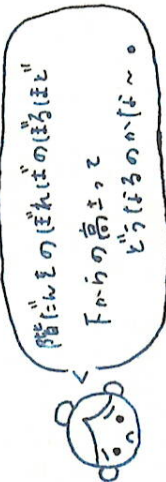 階だんをのぼればのぼるほど
下からの高さって
どうなるのかな～。